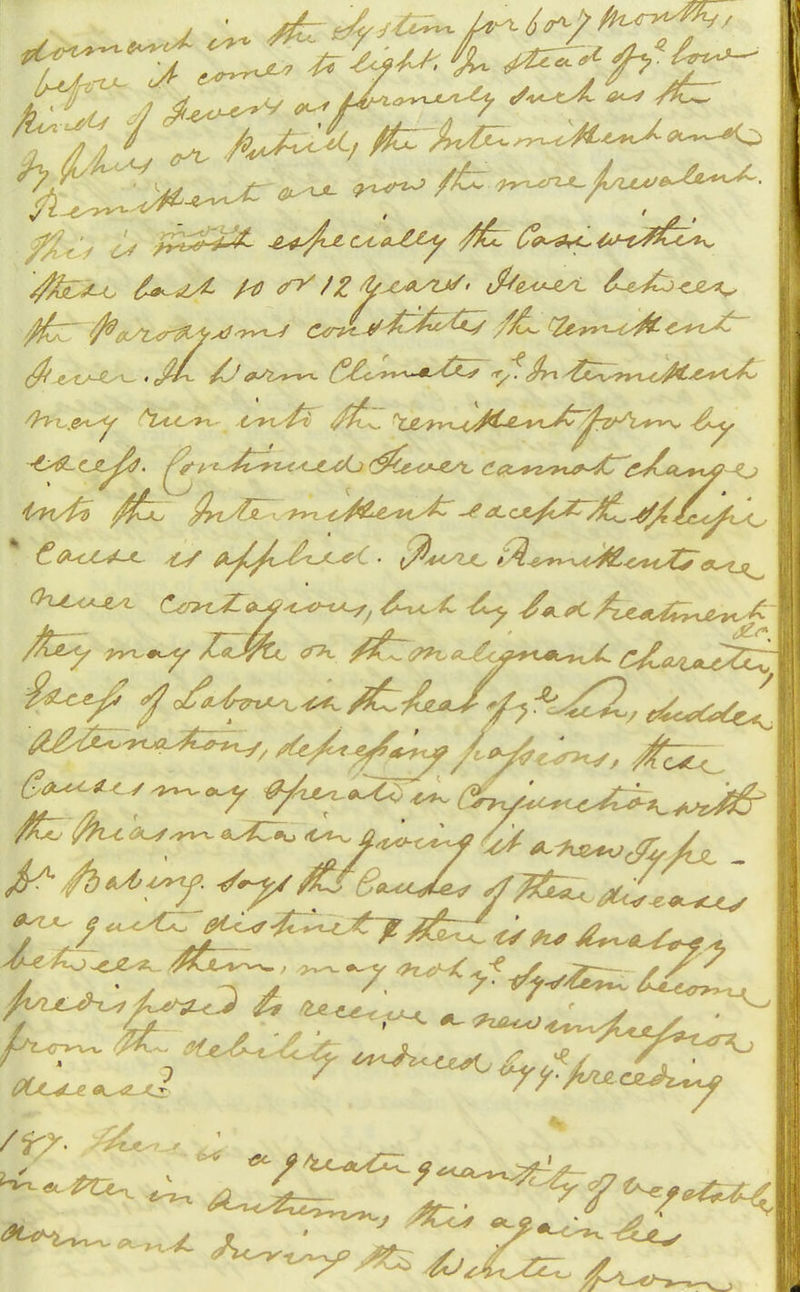 dormant in the System for 6 or 7 Months,
before it comes to light. In stead of ye. low
kinds of Fevers as formerly such as the
Typhus or Putrid, the Intermittent and
Remittent are now the more prevalent.
This is most especially the Case within
these last 10 or 12 years. Fever between
the Paroxysms constitutes the remittent
Fever. In Warm Climates ye. Intermittent
may run into the remittent form by
excess. Continued Fever cannot change
into the Intermittent except the specific
Cause is applied. Pure Remittents are
never Contagious, but by bad treatment &c.
they may take on the malignant character,
Excess of Labour in the heat of ye. Sun, sudden
Alternations, depressing passions, these
Causes may operate in Conjunction with
the Miasmata in giving it a new Type -
Dr. Babing. says the Causes of these diseases
are quite distinct & there is no Analogy
between them, may not ye. System become
predisposed to receive a new impression
from the debility induced by ye. preceding
disease?
187. There is a greater quantity of vegetable
matter in Autumn, this again lies
dormant during the Winter from